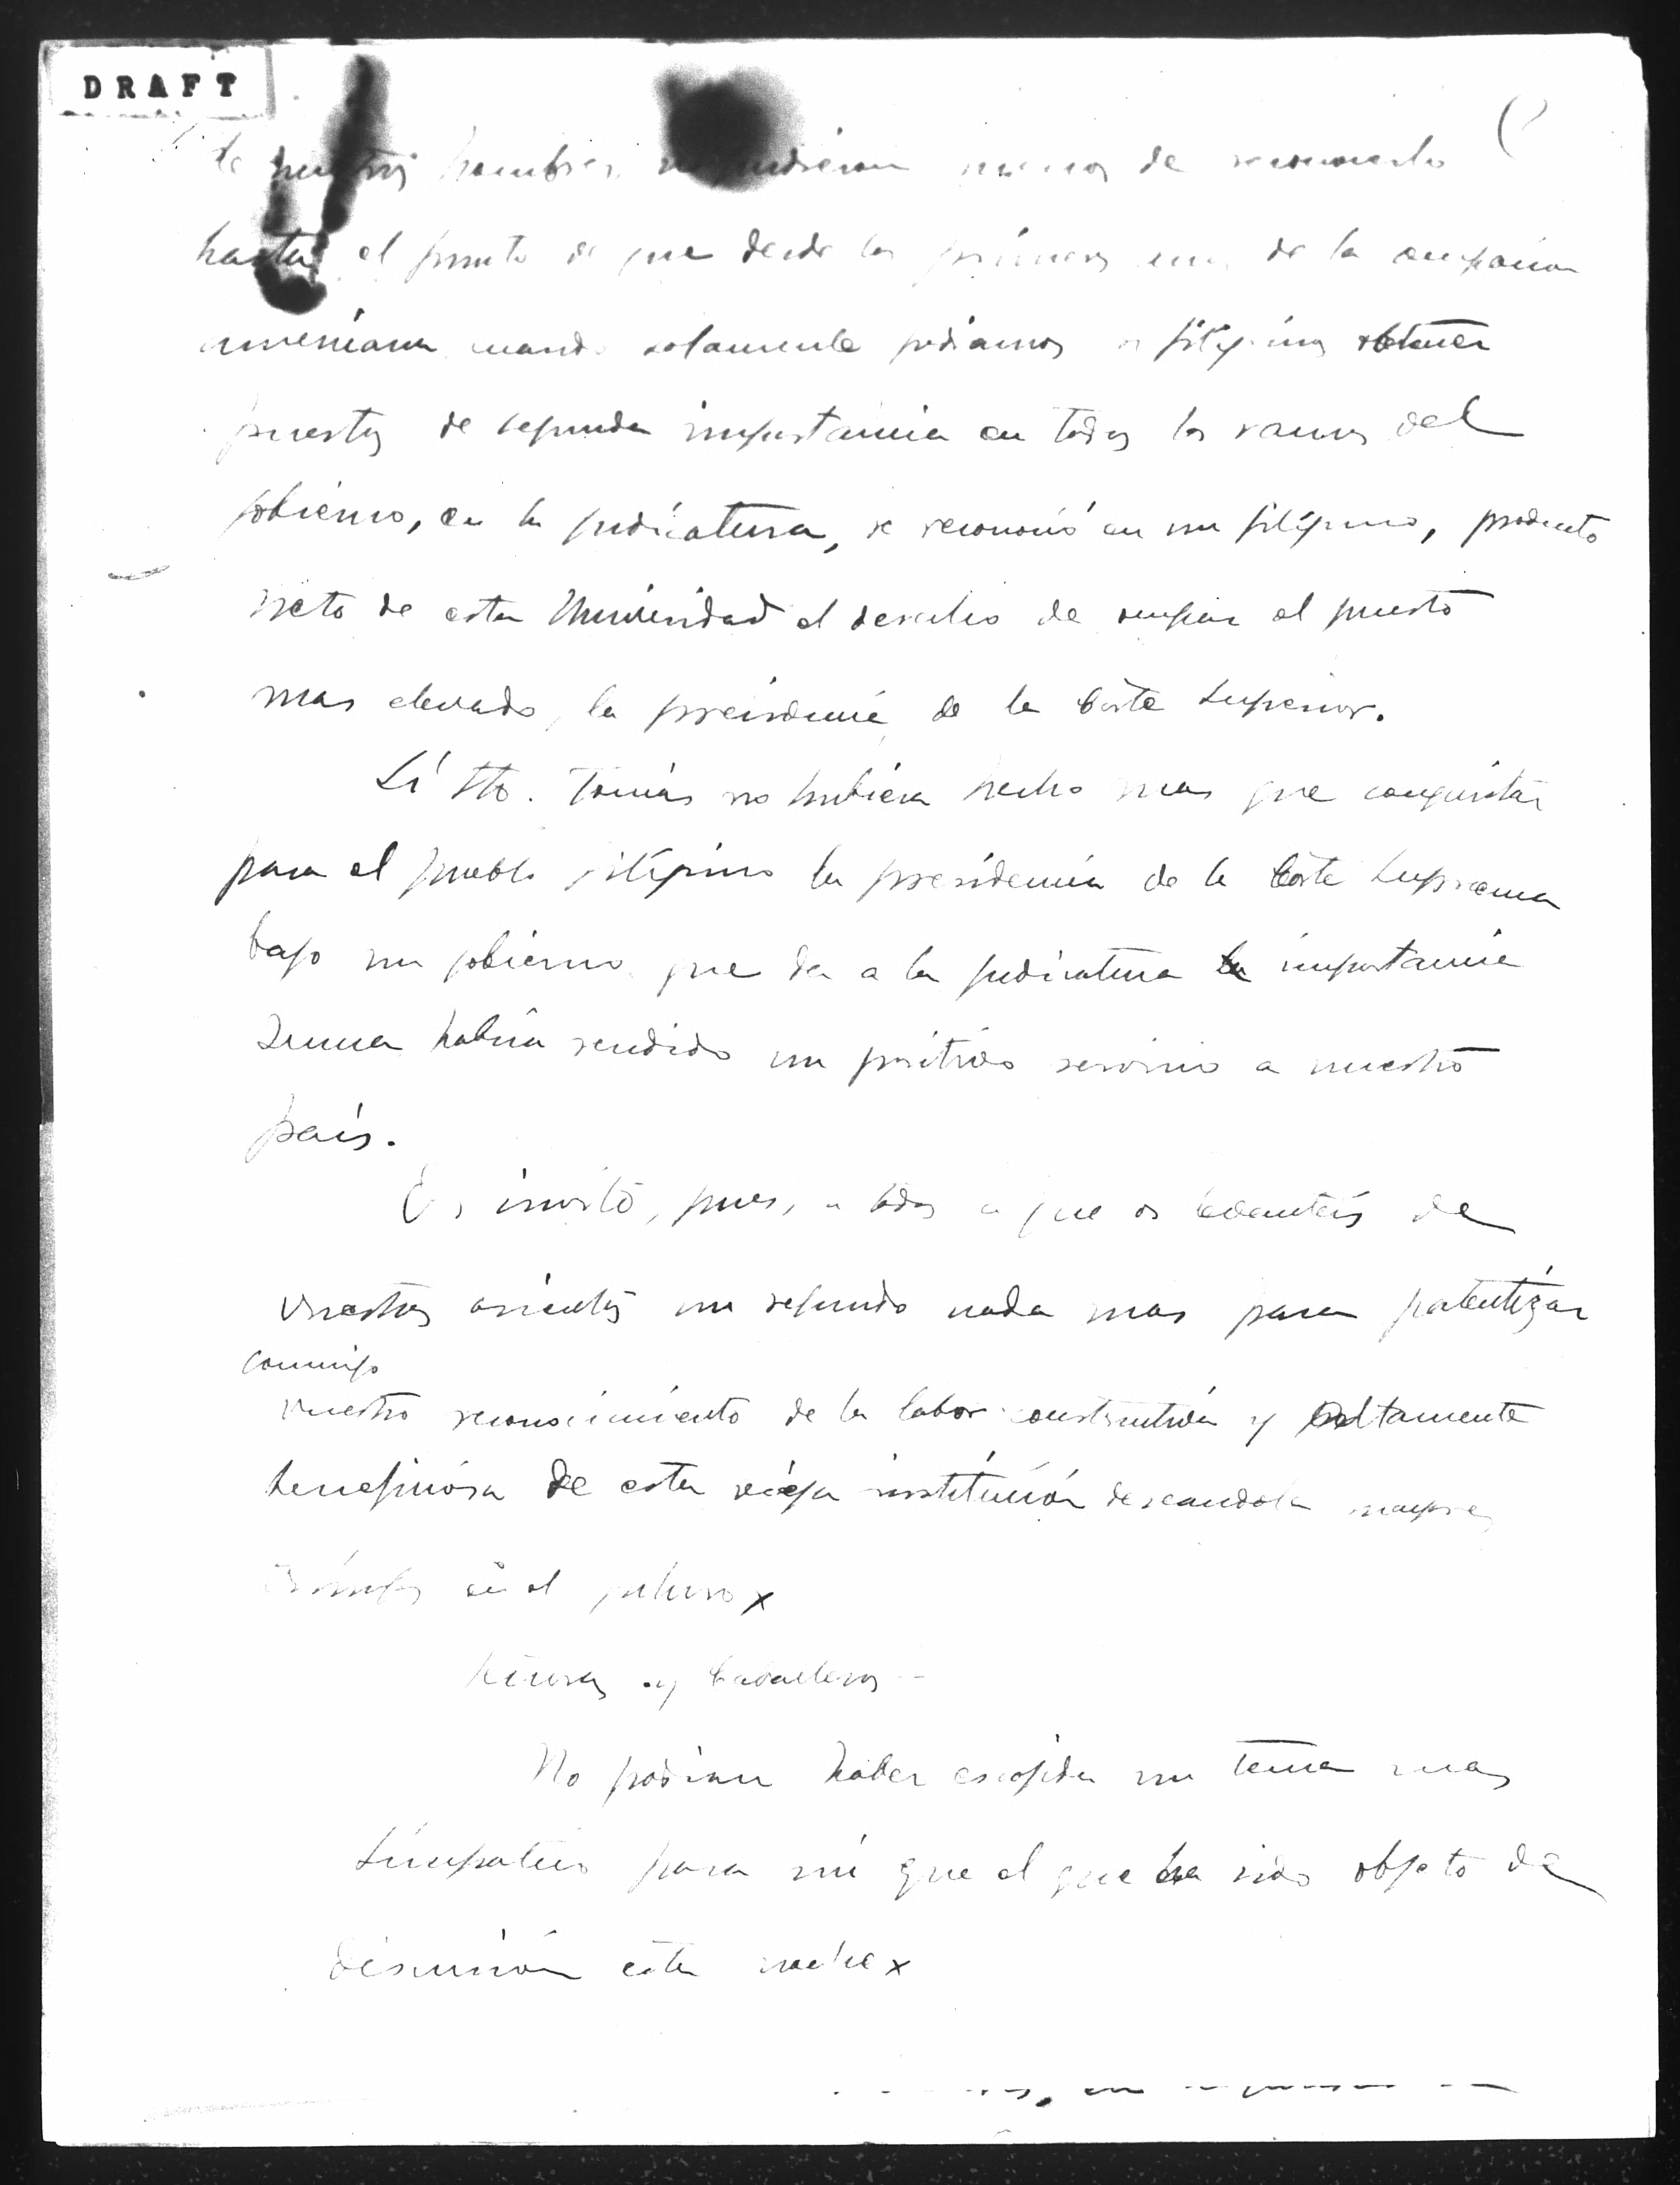 DRAFT
de nuestros hombres, no pudieron menos de reconocerlo
hasta el punto de que desde los primeros de la ocupacion
americana cuando solamente podiamos filipinos obtener
puestos de segunda importancia en todos los ramos del
gobierno, en la judicatura, se reconoció en un filipino, producto
neto de esta Universidad el derecho de ocupar el puesto
mas elevado, la presidencia de la Corte Superior.
Si Sto. Tomás no hubiera hecho mas que conquistar
para el pueblo filipino la presidencia de la Corte Suprema
bajo un gobierno que da a la judicatura la importancia
suma habria rendido un positivo servicio a nuestro
país.
Os invito, pues, a todos a que os levanteis de
vuestros asientos un segundo nada mas para patentizar
conmigo
vuestro reconocimiento de la labor constructiva y altamente
beneficiosa de esta vieja institución deseandola mayores
triunfos en el futuro x
Señoras y Caballeros -
No podian haber escogido un tema mas
simpatico para mí que el que ha sido objeto de
discusión esta noche x